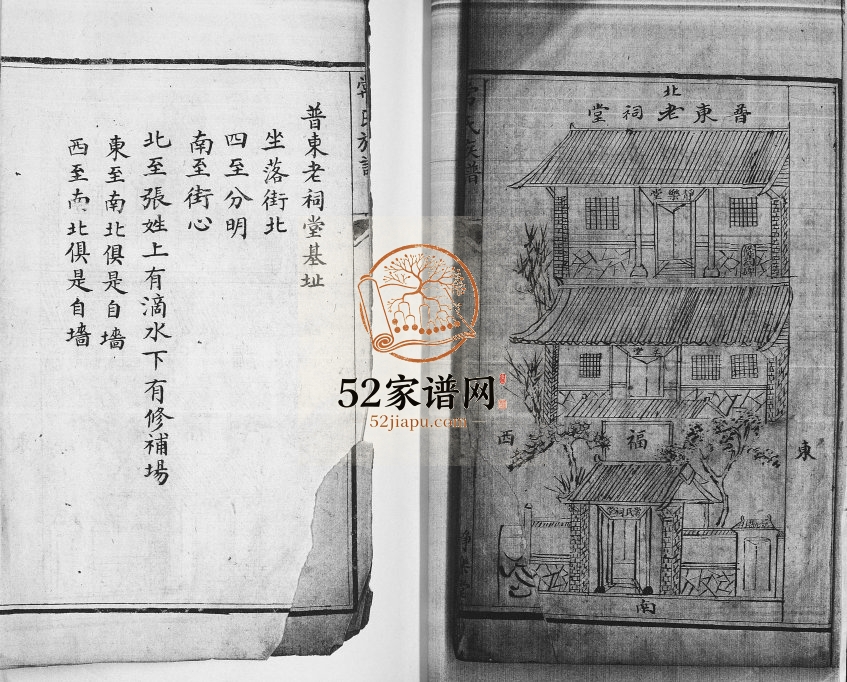 普東老祠堂基址
坐落街北
四至分明
南至街心
北至張姓上有滴水下有修補場
東至南北俱是自墻
西至南北俱是自墻
氏族譜
52家谱网
52jiapu.com
北
普東老祠堂
氏族譜
靜樂堂
堂
西
福
東
常氏祠堂
南